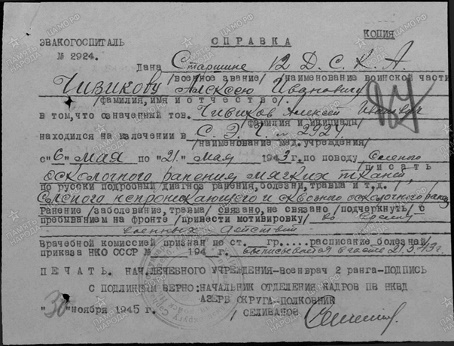 СПРАВКА КОПИЯ
ЭВАКОГОСПИТАЛЬ
№ 2924.
Дана Старшине 12 Д.С.К.А.
/военное звание/ /наименование воинской части
Чивикову Алексею Ивановичу
/фамилия, имя и отчество/.
в том, что означенный тов. Чивиков Алексей
/фамилия и инициалы/
находился на излечении в С.Э.Г. № 2924
/наименование мед. учреждения/
с "6" мая по "21" мая 1943г. по поводу
осколочного ранения мягких тканей /писать
по русски подробный диагноз ранения, болезни, травмы и т.д./
непроникающего и осколочного
Ранение /заболевание, травма/ связано, не связано /подчеркнуть/ с
пребыванием на фронте /привести мотивировку/ во время
военных действий
Врачебной комиссией признан по ст. гр. расписание болезней
приказа НКО СССР № 194 г. 21.5.43г.
ПЕЧАТЬ. НАЧ. ЛЕЧЕБНОГО УЧРЕЖДЕНИЯ-военврач 2 ранга-ПОДПИСЬ
С ПОДЛИННЫМ ВЕРНО: НАЧАЛЬНИК ОТДЕЛЕНИЯ КАДРОВ ПВ НКВД
АЗЕРБ ОКРУГА-ПОЛКОВНИК
"30" ноября 1945 г. СЕЛИВАНОВ